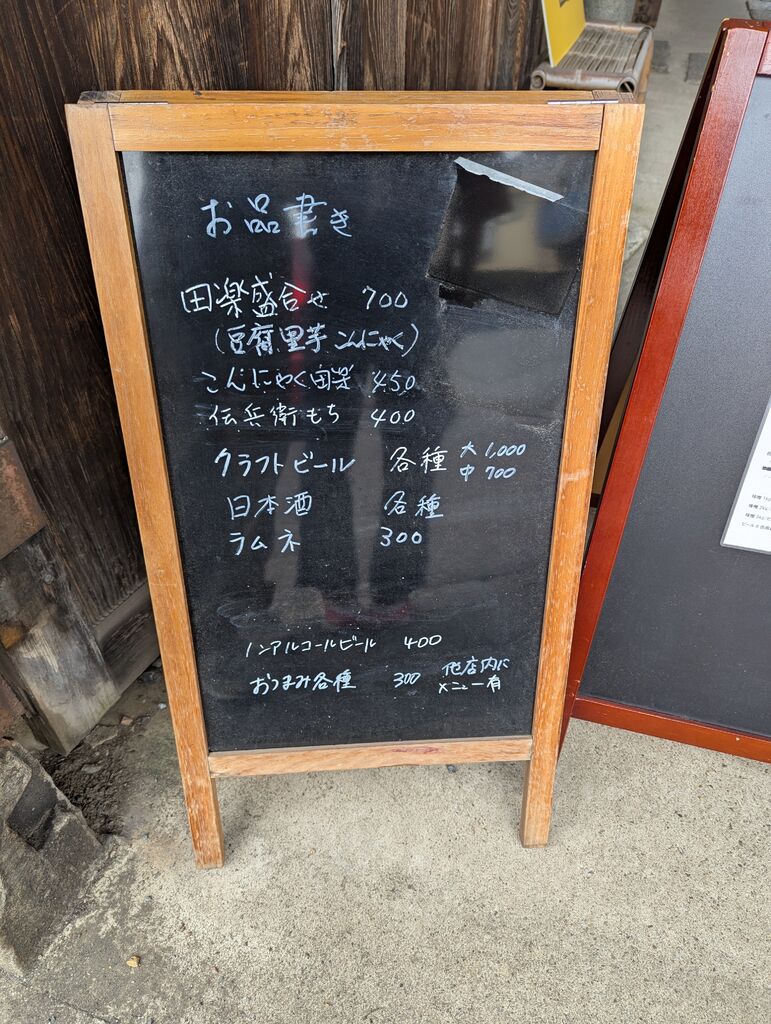 お品書き
田楽盛合せ 700
(豆腐里芋こんにゃく)
こんにゃく田楽 450
伝兵衛もち 400
クラフトビール 各種 大 1,000
中 700
日本酒 各種
ラムネ 300
ノンアルコールビール 400
おつまみ各種 300 他店内に
メニュー有